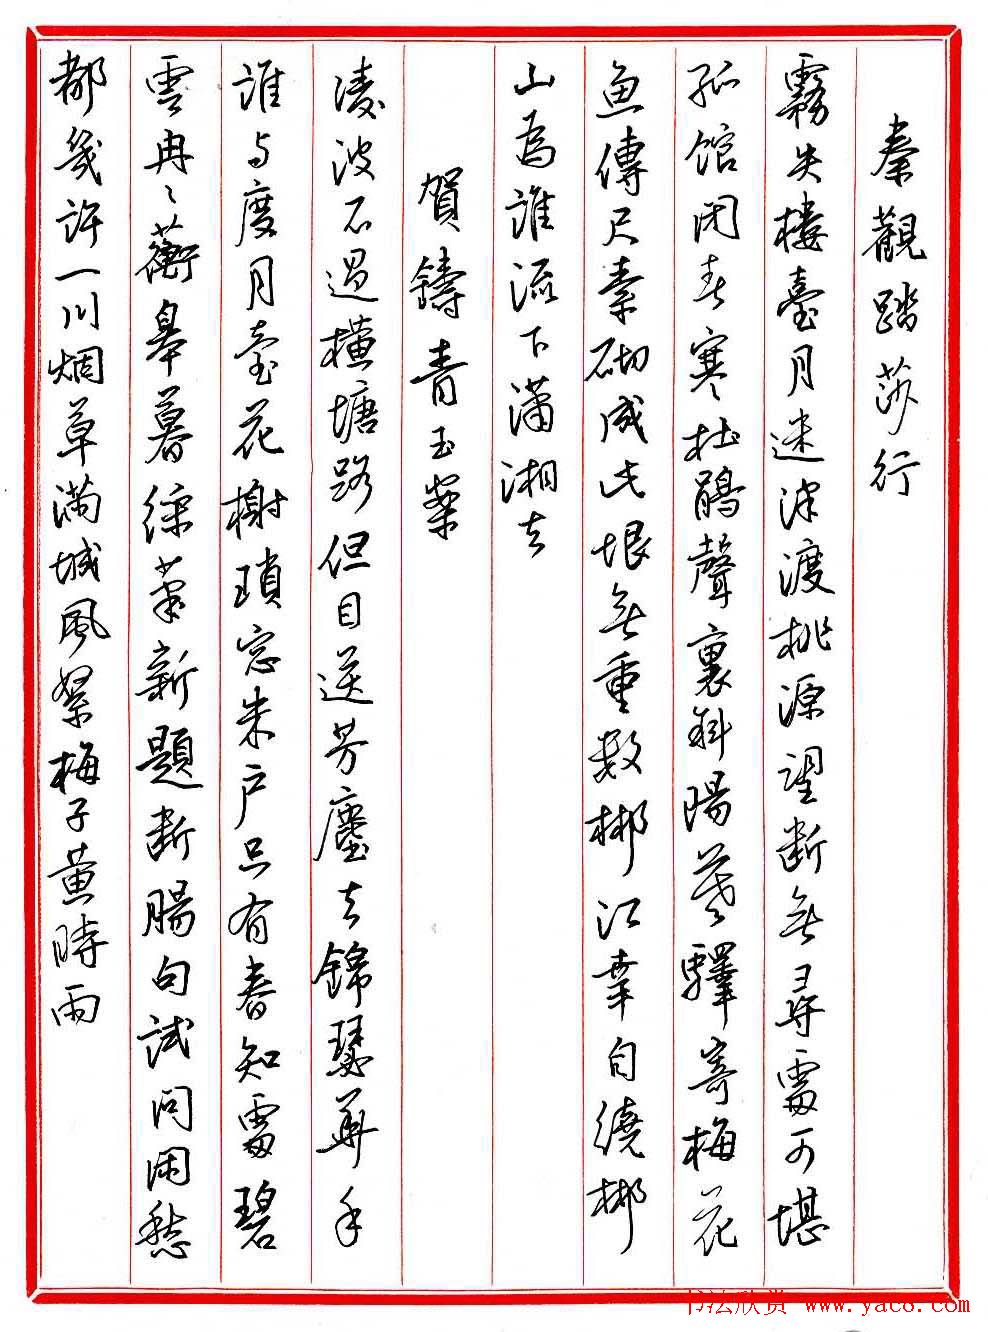 秦觀踏莎行
霧失樓臺月迷津渡桃源望断無尋處可堪
孤馆闭春寒杜鵑聲裏斜陽暮驛寄梅花
魚傳尺素砌成此恨無重数郴江幸自繞郴
山為誰流下瀟湘去
賀鑄青玉案
淩波不過横塘路但目送芳塵去錦瑟華年
誰与度月臺花榭瑣窓朱户只有春知處碧
雲冉々蘅皋暮綵筆新題断腸句試问闲愁
都幾许一川烟草满城風絮梅子黄時雨
书法欣赏 www.yac8.com